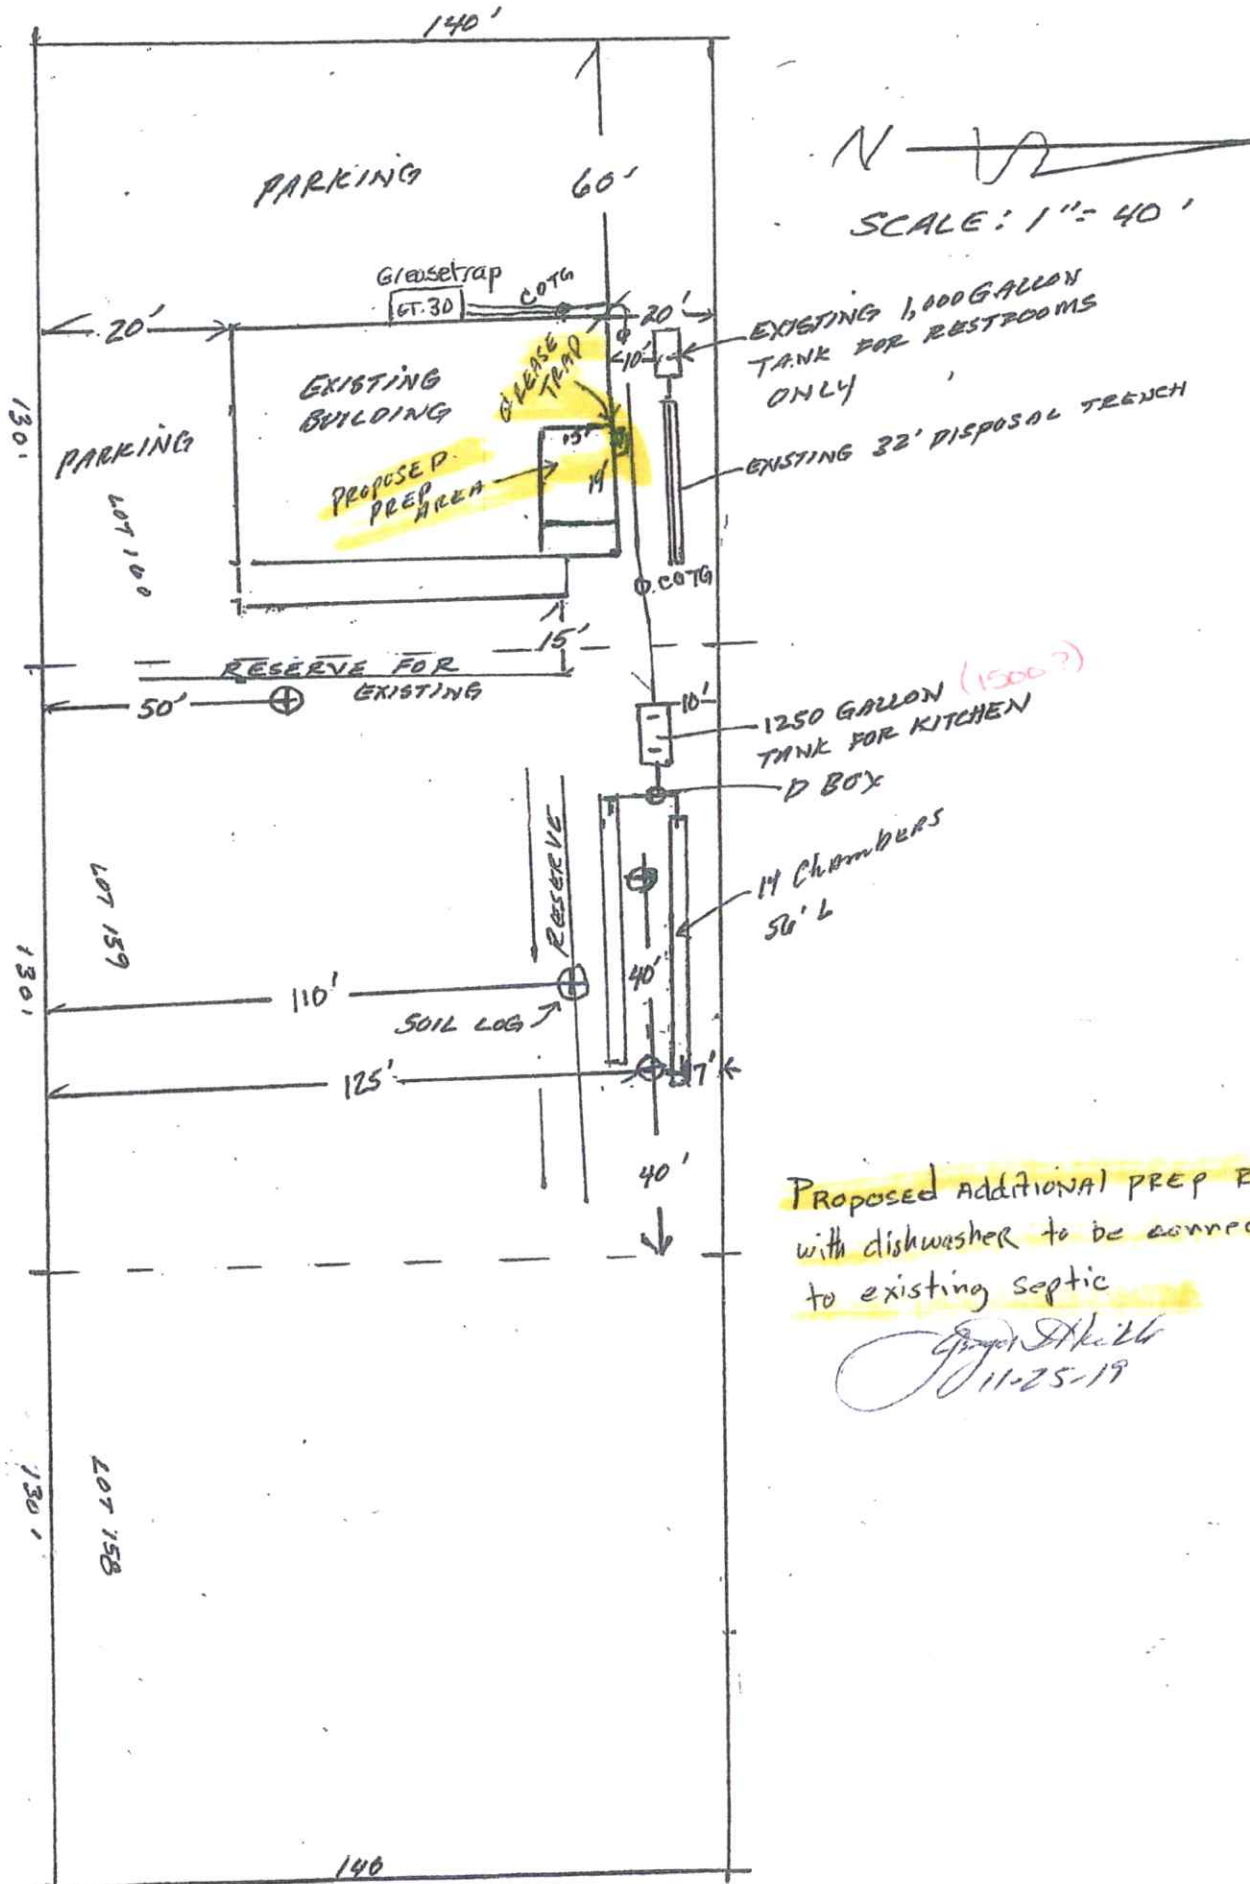 140'
N
SCALE: 1"= 40'
PARKING
60'
Greasetrap
GT.30
COTG
20'
20'
10'
EXISTING 1,000 GALLON
TANK FOR RESTROOMS
ONLY
EXISTING
BUILDING
GREASE
TRAP
130'
PARKING
15'
14'
PROPOSED
PREP
AREA
EXISTING 32' DISPOSAL TRENCH
LOT 160
COTG
15'
RESERVE FOR
EXISTING
50'
10'
1250 GALLON (1500?)
TANK FOR KITCHEN
D BOX
RESERVE
14 Chambers
56' L
LOT 159
130'
110'
40'
SOIL LOG
125'
7'
40'
PROPOSED AddiTIONAl PREP
with dishwasher to be
to existing septic
11-25-19
LOT 158
130'
140